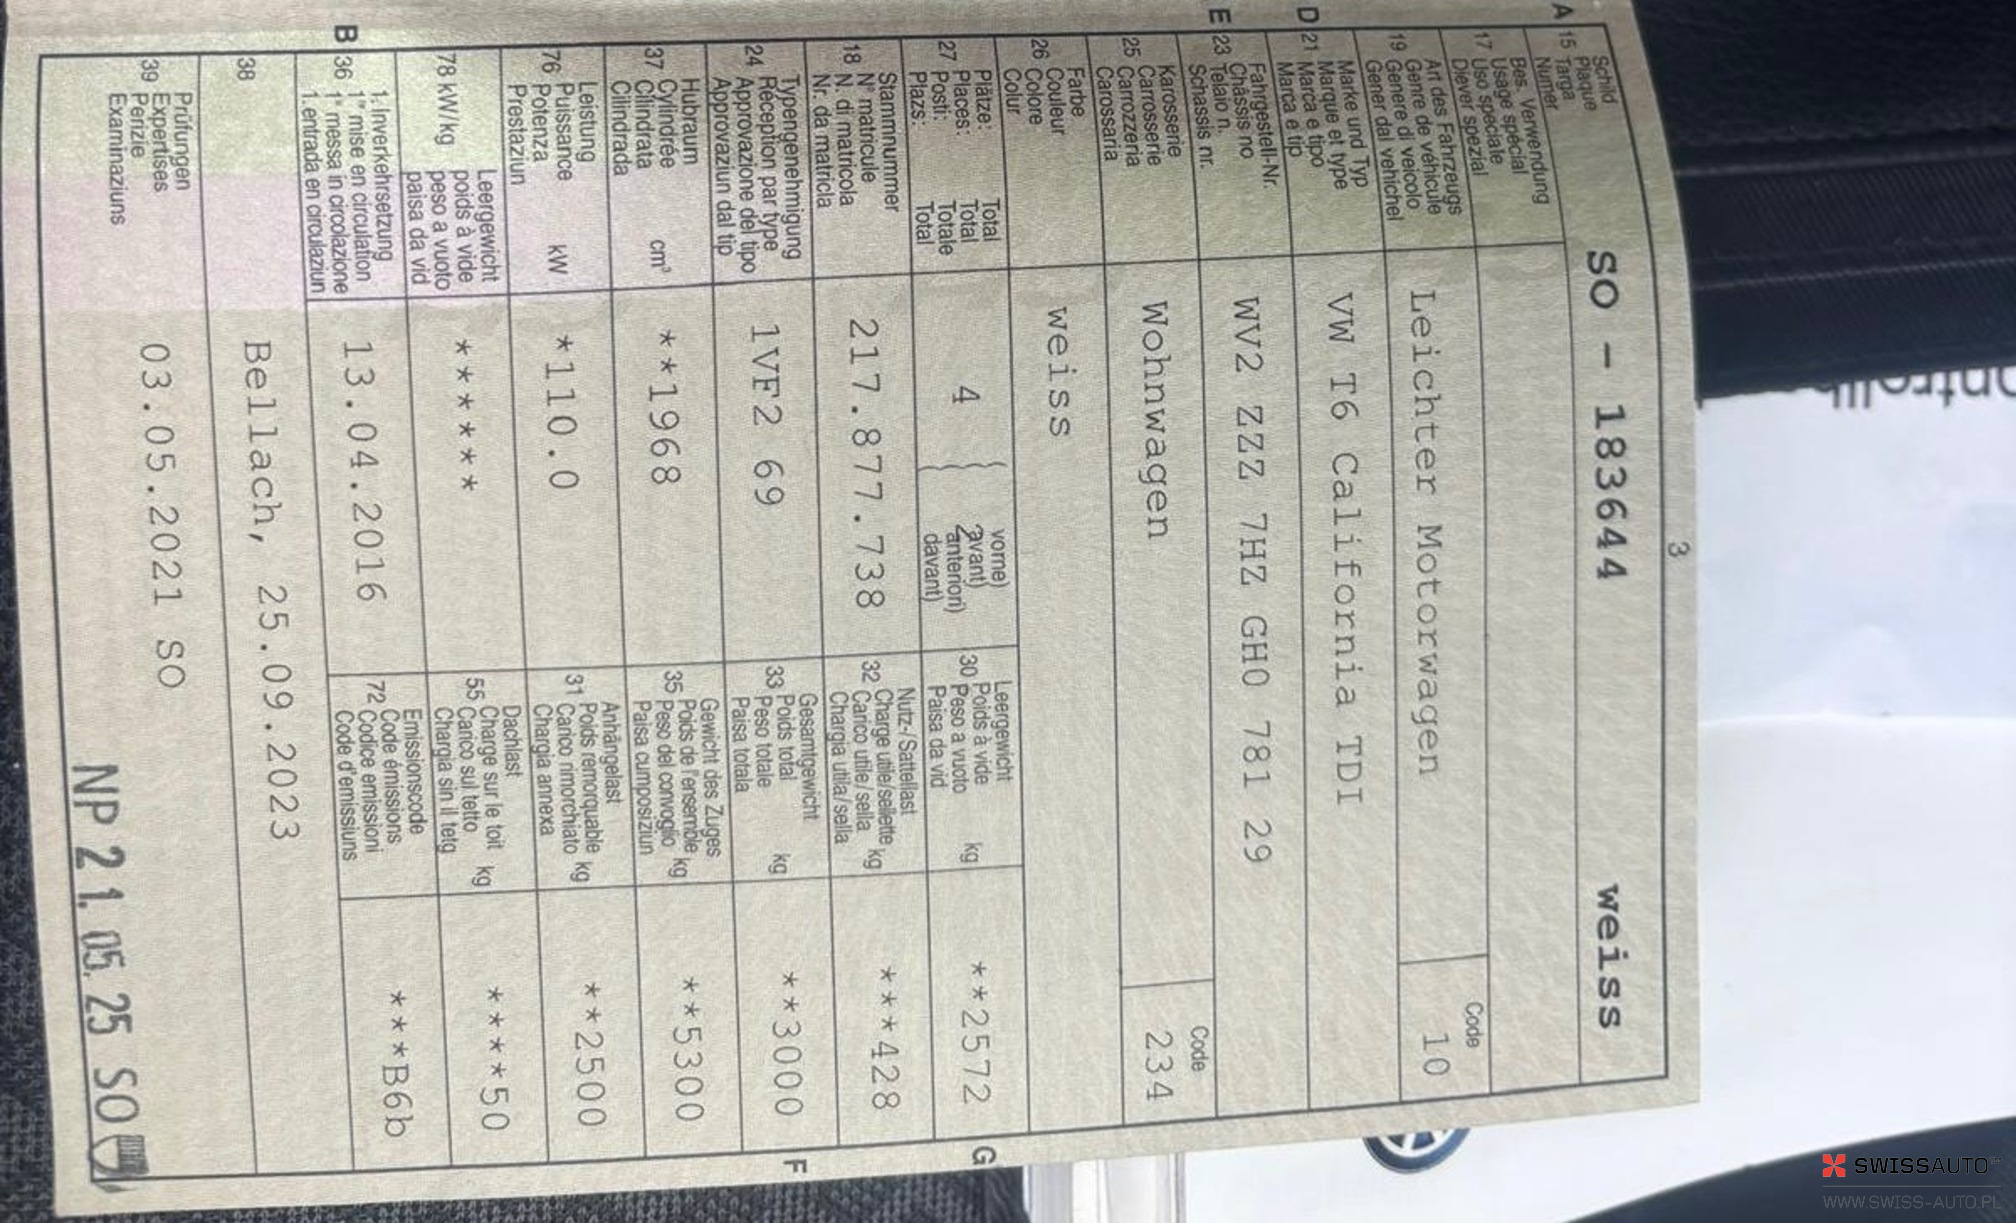 3
A 15 Schild
Plaque
Targa
Numer
SO - 183644 weiss
17 Bes. Verwendung
Usage spécial
Uso speciale
Diever spezial
19 Art des Fahrzeugs
Genre de véhicule
Genere di veicolo
Gener dal vehichel
Leichter Motorwagen
Code
10
D 21 Marke und Typ
Marque et type
Marca e tipo
Marca e tip
VW T6 California TDI
E 23 Fahrgestell-Nr.
Châssis no
Telaio n.
Schassis nr.
WV2 ZZZ 7HZ GH0 781 29
25 Karosserie
Carrosserie
Carrozzeria
Carossaria
Wohnwagen
Code
234
26 Farbe
Couleur
Colore
Colur
weiss
27 Plätze: Total
Places: Total
Posti: Totale
Plazs: Total
4
vorne)
avant)
anteriori)
davant)
2
30 Leergewicht
Poids à vide
Peso a vuoto kg
Paisa da vid
**2572
G
18 Stammnummer
N° matricule
N. di matricola
Nr. da matricla
217.877.738
32 Nutz-/Sattellast
Charge utile/sellette kg
Carico utile/sella
Chargia utila/sella
***428
24 Typengenehmigung
Réception par type
Approvazione del tipo
Approvaziun dal tip
1VF2 69
33 Gesamtgewicht
Poids total
Peso totale kg
Paisa totala
**3000
F
37 Hubraum
Cylindrée
Cilindrata cm³
Cilindrada
**1968
35 Gewicht des Zuges
Poids de l'ensemble kg
Peso del convoglio
Paisa cumposiziun
**5300
76 Leistung
Puissance
Potenza kW
Prestaziun
*110.0
31 Anhängelast
Poids remorquable kg
Carico rimorchiato
Chargia annexa
**2500
78 kW/kg Leergewicht
poids à vide
peso a vuoto
paisa da vid
******
55 Dachlast
Charge sur le toit kg
Carico sul tetto
Chargia sin il tetg
****50
B 36 1. Inverkehrsetzung
1re mise en circulation
1a messa in circolazione
1. entrada en circulaziun
13.04.2016
72 Emissionscode
Code émissions
Codice emissioni
Code d'emissiuns
***B6b
38
Bellach, 25.09.2023
39 Prüfungen
Expertises
Perizie
Examinaziuns
03.05.2021 SO
NP 21. 05. 25 SO
SWISSAUTO
WWW.SWISS-AUTO.PL